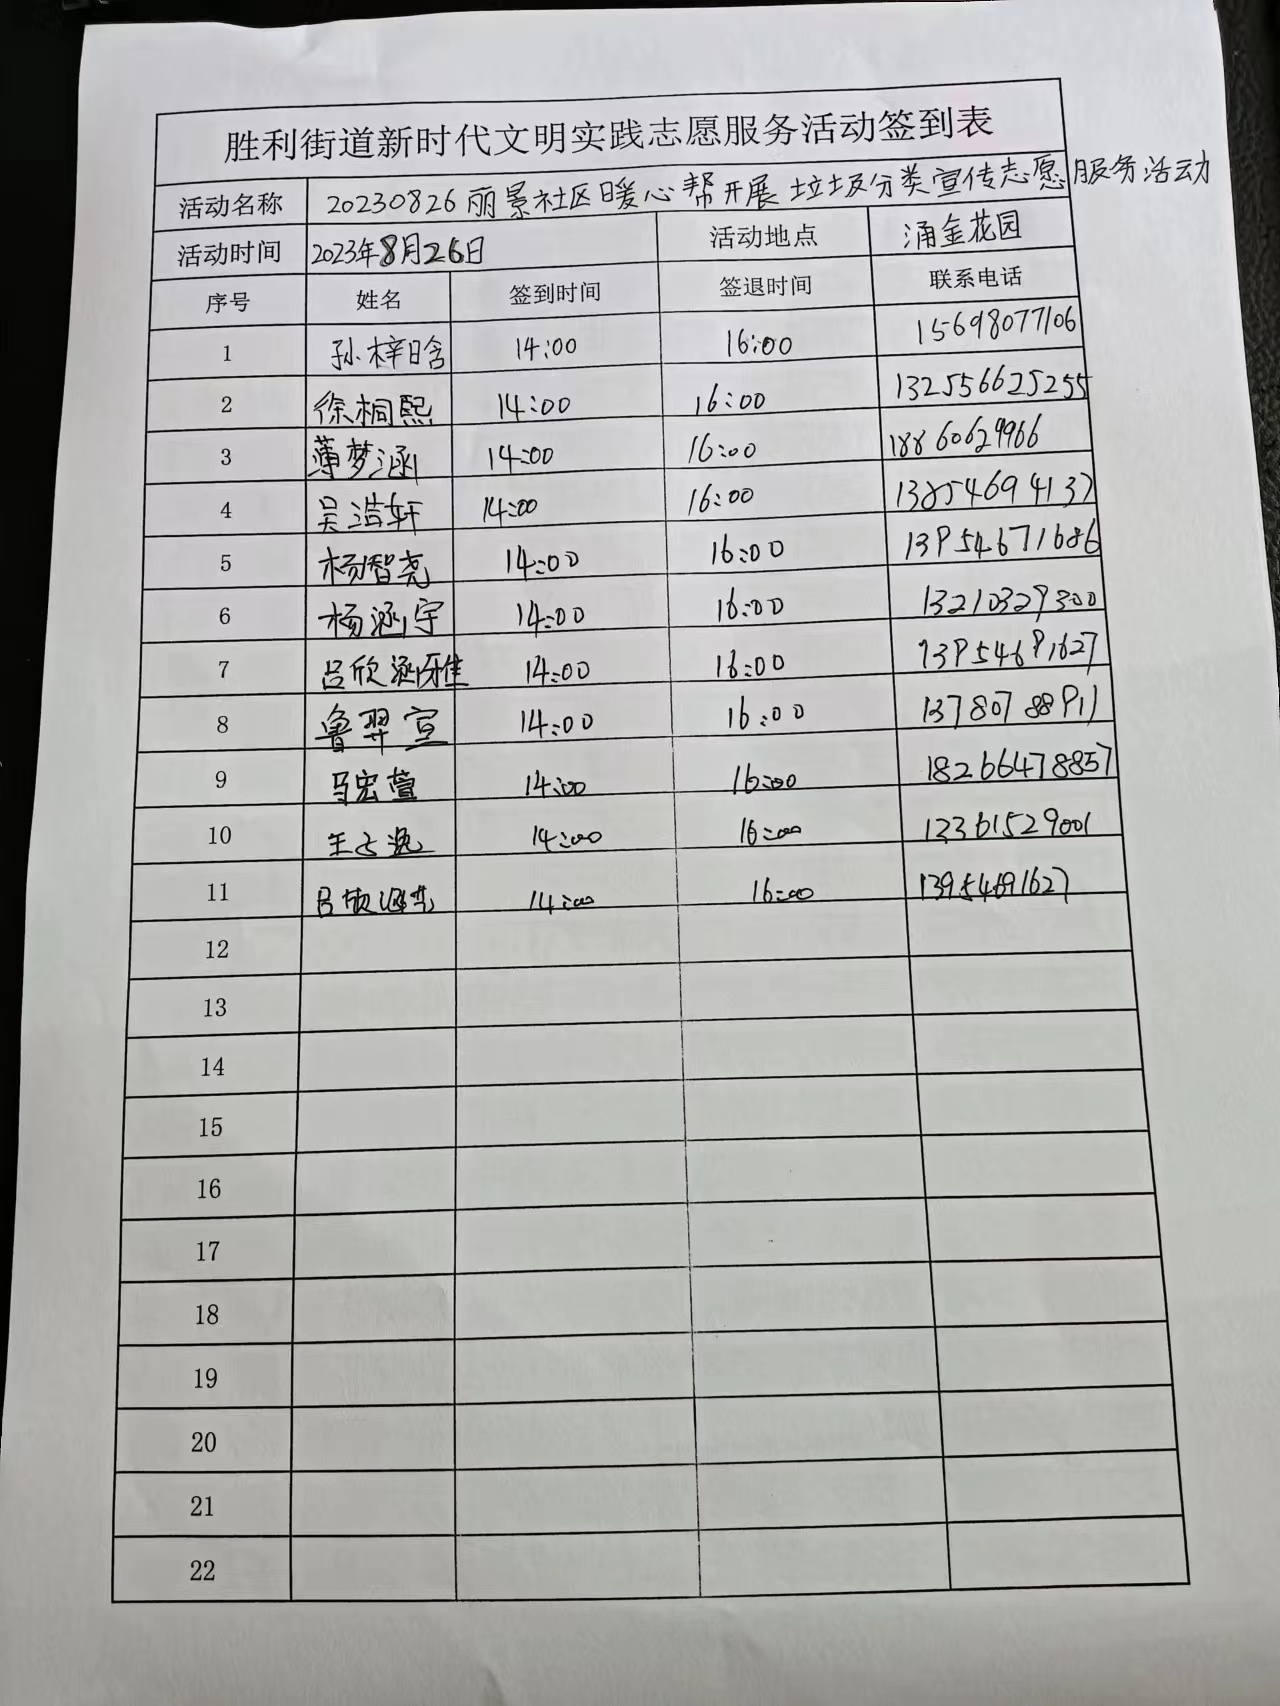 胜利街道新时代文明实践志愿服务活动签到表
活动名称 20230826丽景社区暖心帮开展垃圾分类宣传志愿服务活动
活动时间 2023年8月26日 活动地点 涌金花园
序号 姓名 签到时间 签退时间 联系电话
1 孙梓晗 14:00 16:00 15698077106
2 徐桐熙 14:00 16:00 132556625255
3 薄梦涵 14:00 16:00 18860629966
4 吴浩轩 14:00 16:00 13854694137
5 杨智尧 14:00 16:00 13954671686
6 杨涵宇 14:00 16:00 13210329300
7 吕欣涵雅 14:00 16:00 13954691627
8 鲁羿宣 14:00 16:00 13780788911
9 马宏萱 14:00 16:00 18266478857
10 14:00 16:00 13361529001
11 14:00 16:00 13954691627
12
13
14
15
16
17
18
19
20
21
22